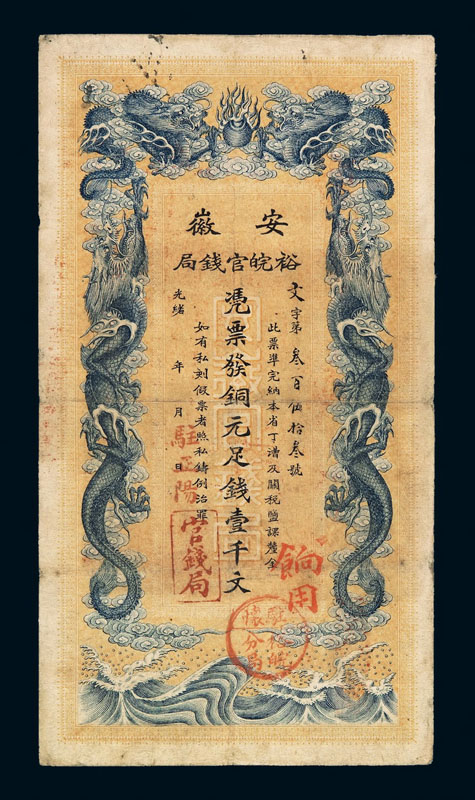 安徽
裕皖官錢局
文字第叁百伍拾叁號
此票準完納本省丁漕及關稅鹽課釐金
憑票發銅元足錢壹千文
如有私刻假票者照私鑄例治罪
光緒 年 月 日
餉用
駐正陽
官錢局